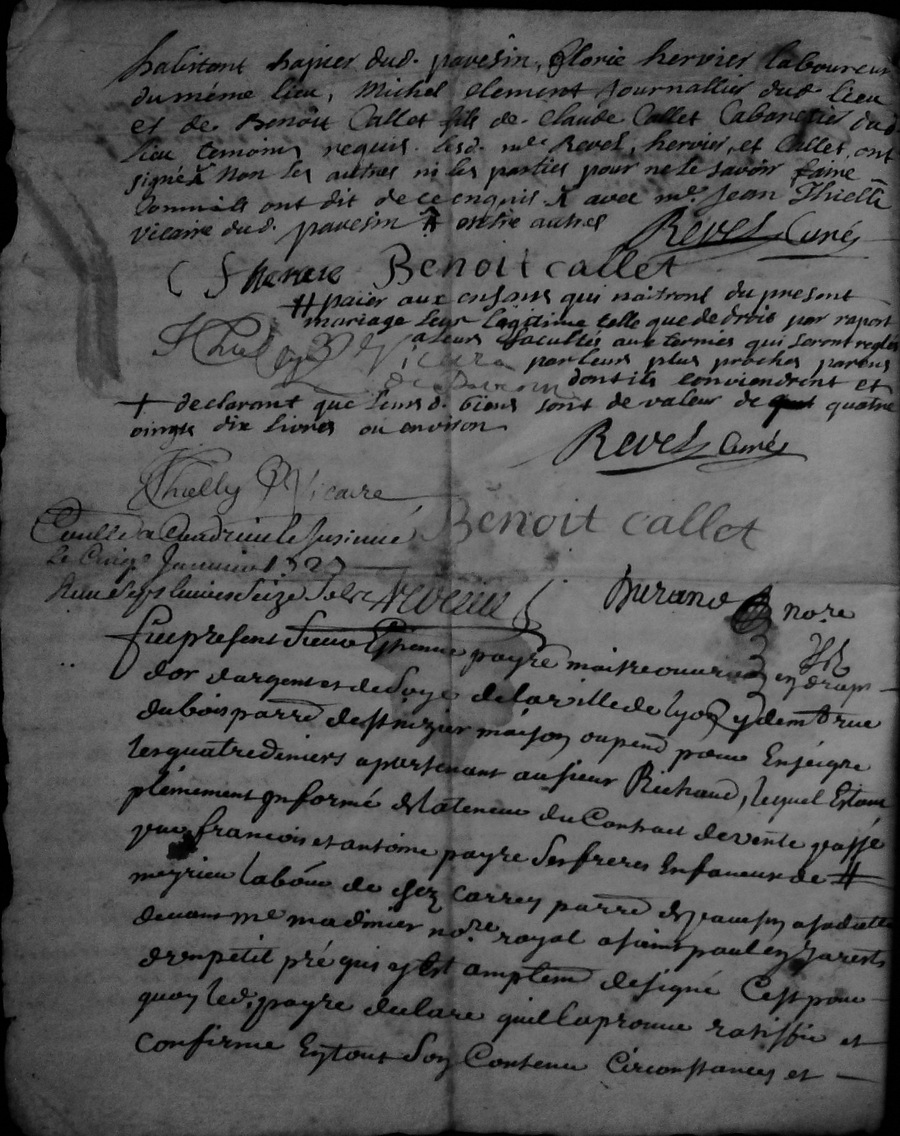 habitant dud. pavesin, florie hervier laboureur
du même lieu, Michel clement journallier dud. lieu
et de Benoit Callet fils de Claude Callet Cabaretier dud.
lieu temoins requis. lesd. mre Revel, hervier, et Callet, ont
signé non les autres ni les parties pour ne le savoir faire
comme ils ont dit de ce enquis avec mre. Jean Thielli
vicaire dud. pavesin # outre autres Revel Curé
Benoit callet
# paier aux enfans qui naitront du present
mariage leur legitime telle que de droit par raport
a leurs facultés aux termes qui seront reglés
par leurs plus proches parens
Vicaire
dont ils conviendront et
+ declarant que leursd. biens sont de valeur de quatre
vingts dix livres ou environ
Revel Curé
Thielly Vicaire
Benoit callet
Durand nore
fut present sieur Estienne payre maitre ouvrier en draps
dor dargent et de soye de la ville de lyon y demt rue
du bois parre de st nizier maison ou pend pour Enseigne
les quatre deniers apartenant au sieur Richaud, lequel Estant
pleinement Informé de la teneur du Contract de vente passé
par francois et antoine payre ses freres En faveur de #
meyrieu labour de chez Carrey parre de pavesin
devant me madinier nore royal a saint paul en Jarests
dun petit pré qui y Est amplemt designé Cest pour
quoy led. payre declare quil laprouve ratiffie et
confirme En tout son Contenu Circonstances et